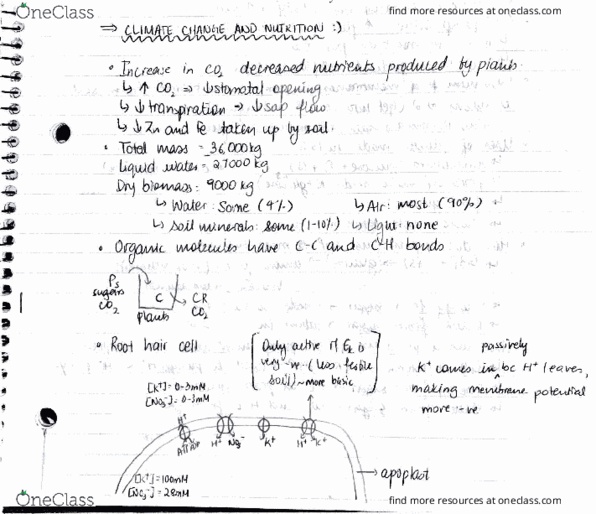 OneClass
find more resources at oneclass.com
⇒ CLIMATE CHANGE AND NUTRITION :)
• Increase in CO2 decreased nutrients produced by plants.
↳ ↑ CO2 → ↓ stomatal opening
↳ ↓ transpiration → ↓ sap flow
↳ ↓ Zn and Fe taken up by soil.
• Total mass = 36,000 kg
Liquid water = 27000 kg
Dry biomass: 9000 kg
↳ Water: Some (4%) ↳ Air: most (90%)
↳ Soil minerals: some (1-10%) ↳ Light: none
• Organic molecules have C-C and C-H bonds
Ps
sugars
CO2
C
CR
CO2
plants
• Root hair cell
[Only active if is
very -ve (less fertile
soil) ~ more basic]
passively
K+ comes in bc H+ leaves,
making membrane potential
more -ve
[K+] = 0-3mM
[NO3-] = 0-3mM
H+
ATP ADP
H+ NO3-
K+
H+ K+
[K+] = 100mM
[NO3-] = 28mM
→ apoplast
OneClass
find more resources at oneclass.com